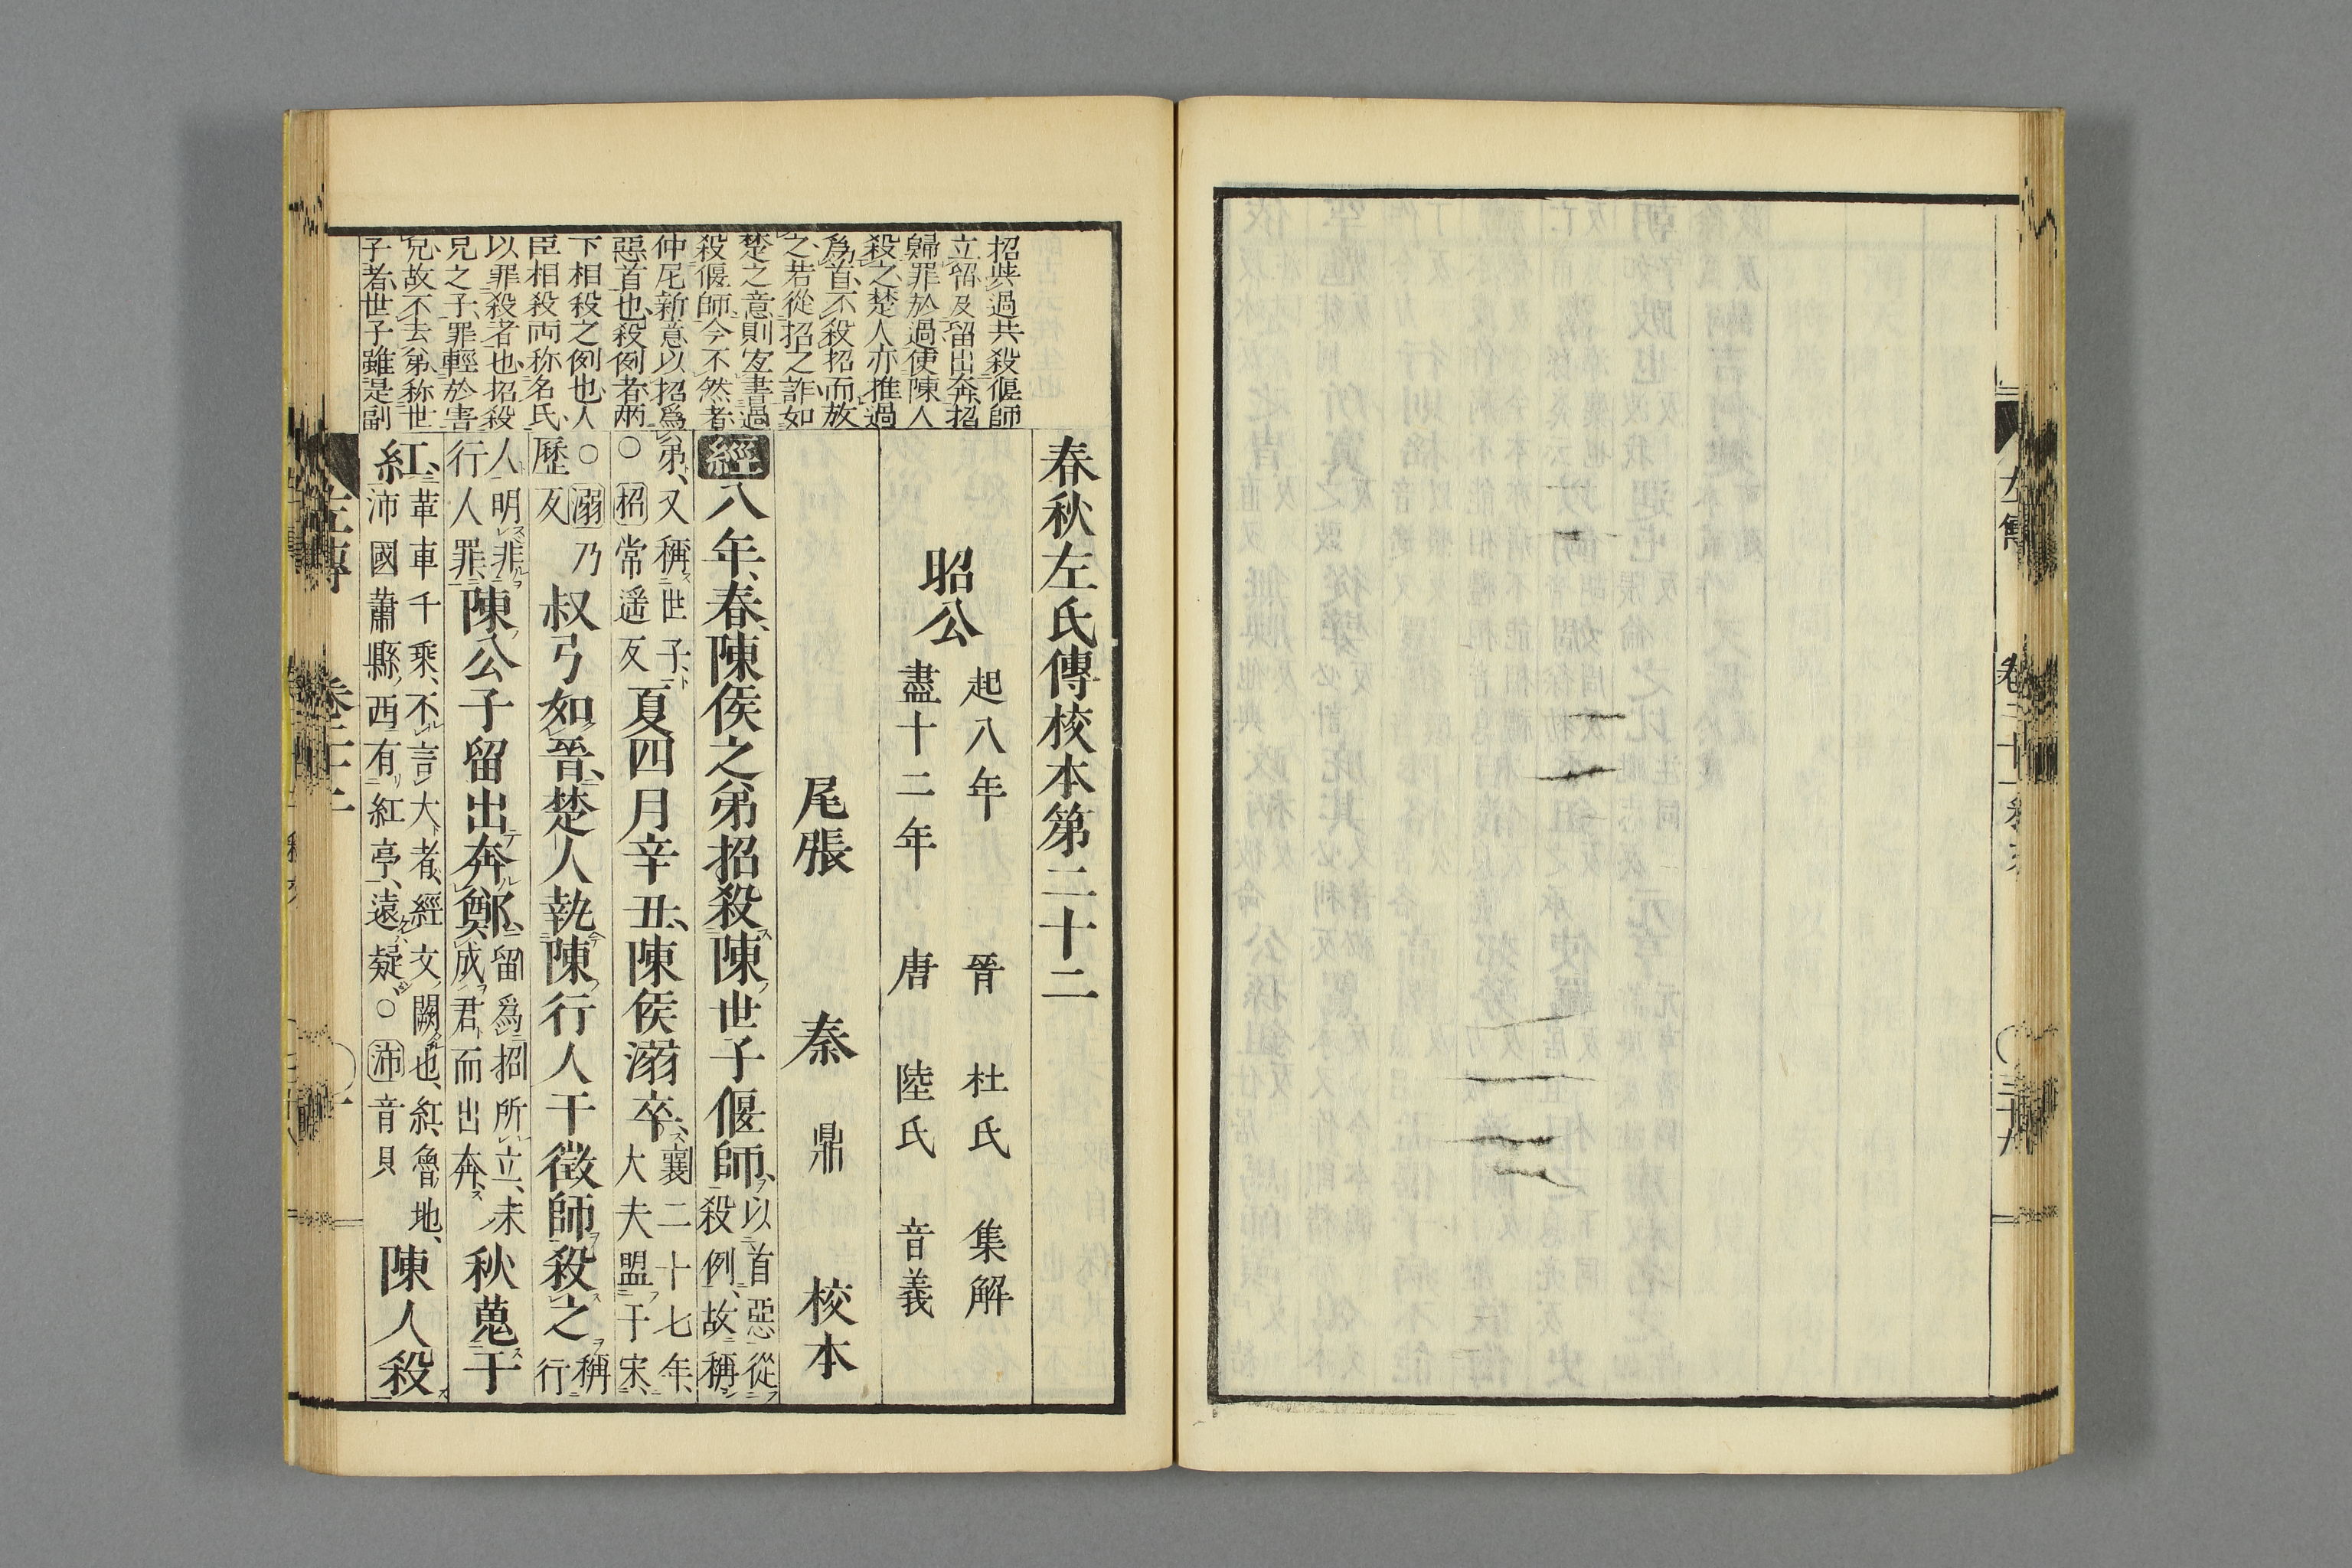 春秋左氏傳校本第二十二
昭公
起八年
盡十二年
晉 杜氏 集解
唐 陸氏 音義
尾張 秦 鼎 校本
招與過共殺偃師
立留及留出奔招
歸罪於過使陳人
殺之楚人亦推過
爲首不殺招而放
之若從招之詐如
楚之意則宜書過
殺偃師今不然者
仲尼新意以招爲
惡首也殺例者兩
下相殺之例也人
臣相殺両称名氏
以罪殺者也招殺
兄之子罪輕於害
兄故不去弟称世
子者世子雖是副
經八年春陳侯之弟招殺陳世子偃師以首惡從殺例故稱
弟又稱世子○招常遥反夏四月辛丑陳侯溺卒襄二十七年大夫盟于宋
○溺乃歷反叔弓如晉楚人執陳行人干徵師殺之稱行
人明非行人罪陳公子留出奔鄭留爲招所立未成君而出奔秋蒐于
紅革車千乘不言大者經文闕也紅魯地沛國蕭縣西有紅亭遠疑○沛音貝陳人殺
左傳